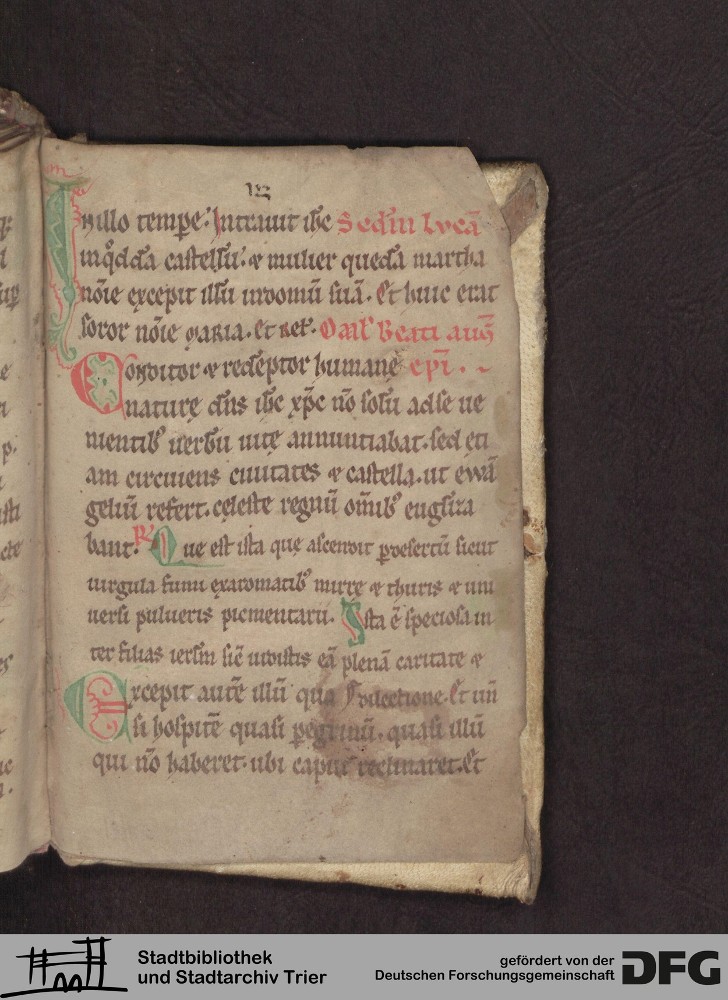 In illo tempe. Intravit ihc Sedm Lvcā
in qd̄da castellū. & mulier quedā martha
nōie excepit illū in domū suā. Et huic erat
soror nōie maria. et rel. Omł Beati auḡ
Conditor & redēptor humanę epī.
naturę dn̄s ihc xp̄c nō solū ad se ve
nientib' verbū vitę annuntiabat. sed eti
am circuiens civitates & castella. ut ewā
geliū refert. cęleste regnū omīb' euḡliza
bant. R' Que est ista quę ascendit p desertū sicut
virgula fumi ex aromatib' mirrę & thuris & uni
versi pulveris picmentarii. Ista ē speciosa in
ter filias ierlm̄ sic̄ vidistis eā plenā caritate &
dilectione. Et un̄
Excepit autē illū qua
si hospitē quasi peregrinū. quasi illū
qui nō haberet. ubi caput reclinaret. Et
Stadtbibliothek
und Stadtarchiv Trier
gefördert von der
Deutschen Forschungsgemeinschaft
DFG